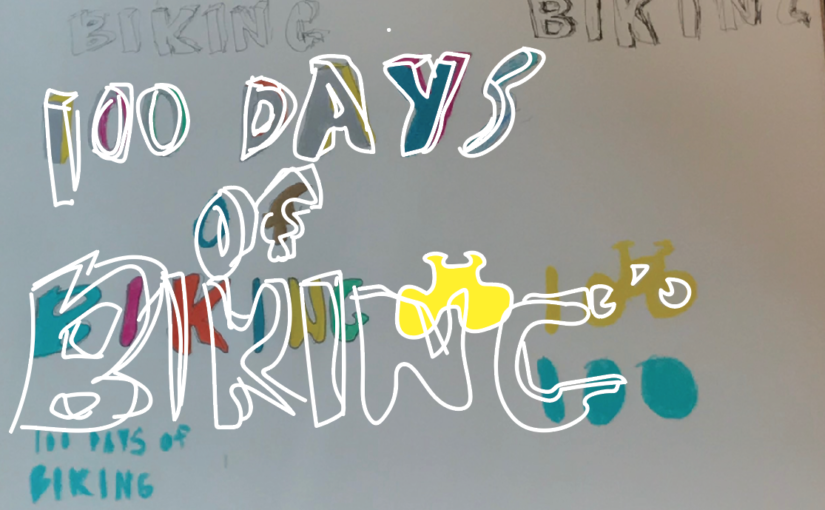 BIKING BIKING
100 DAYS
OF
BIKING
BIKING
100
100
100 DAYS OF
BIKING